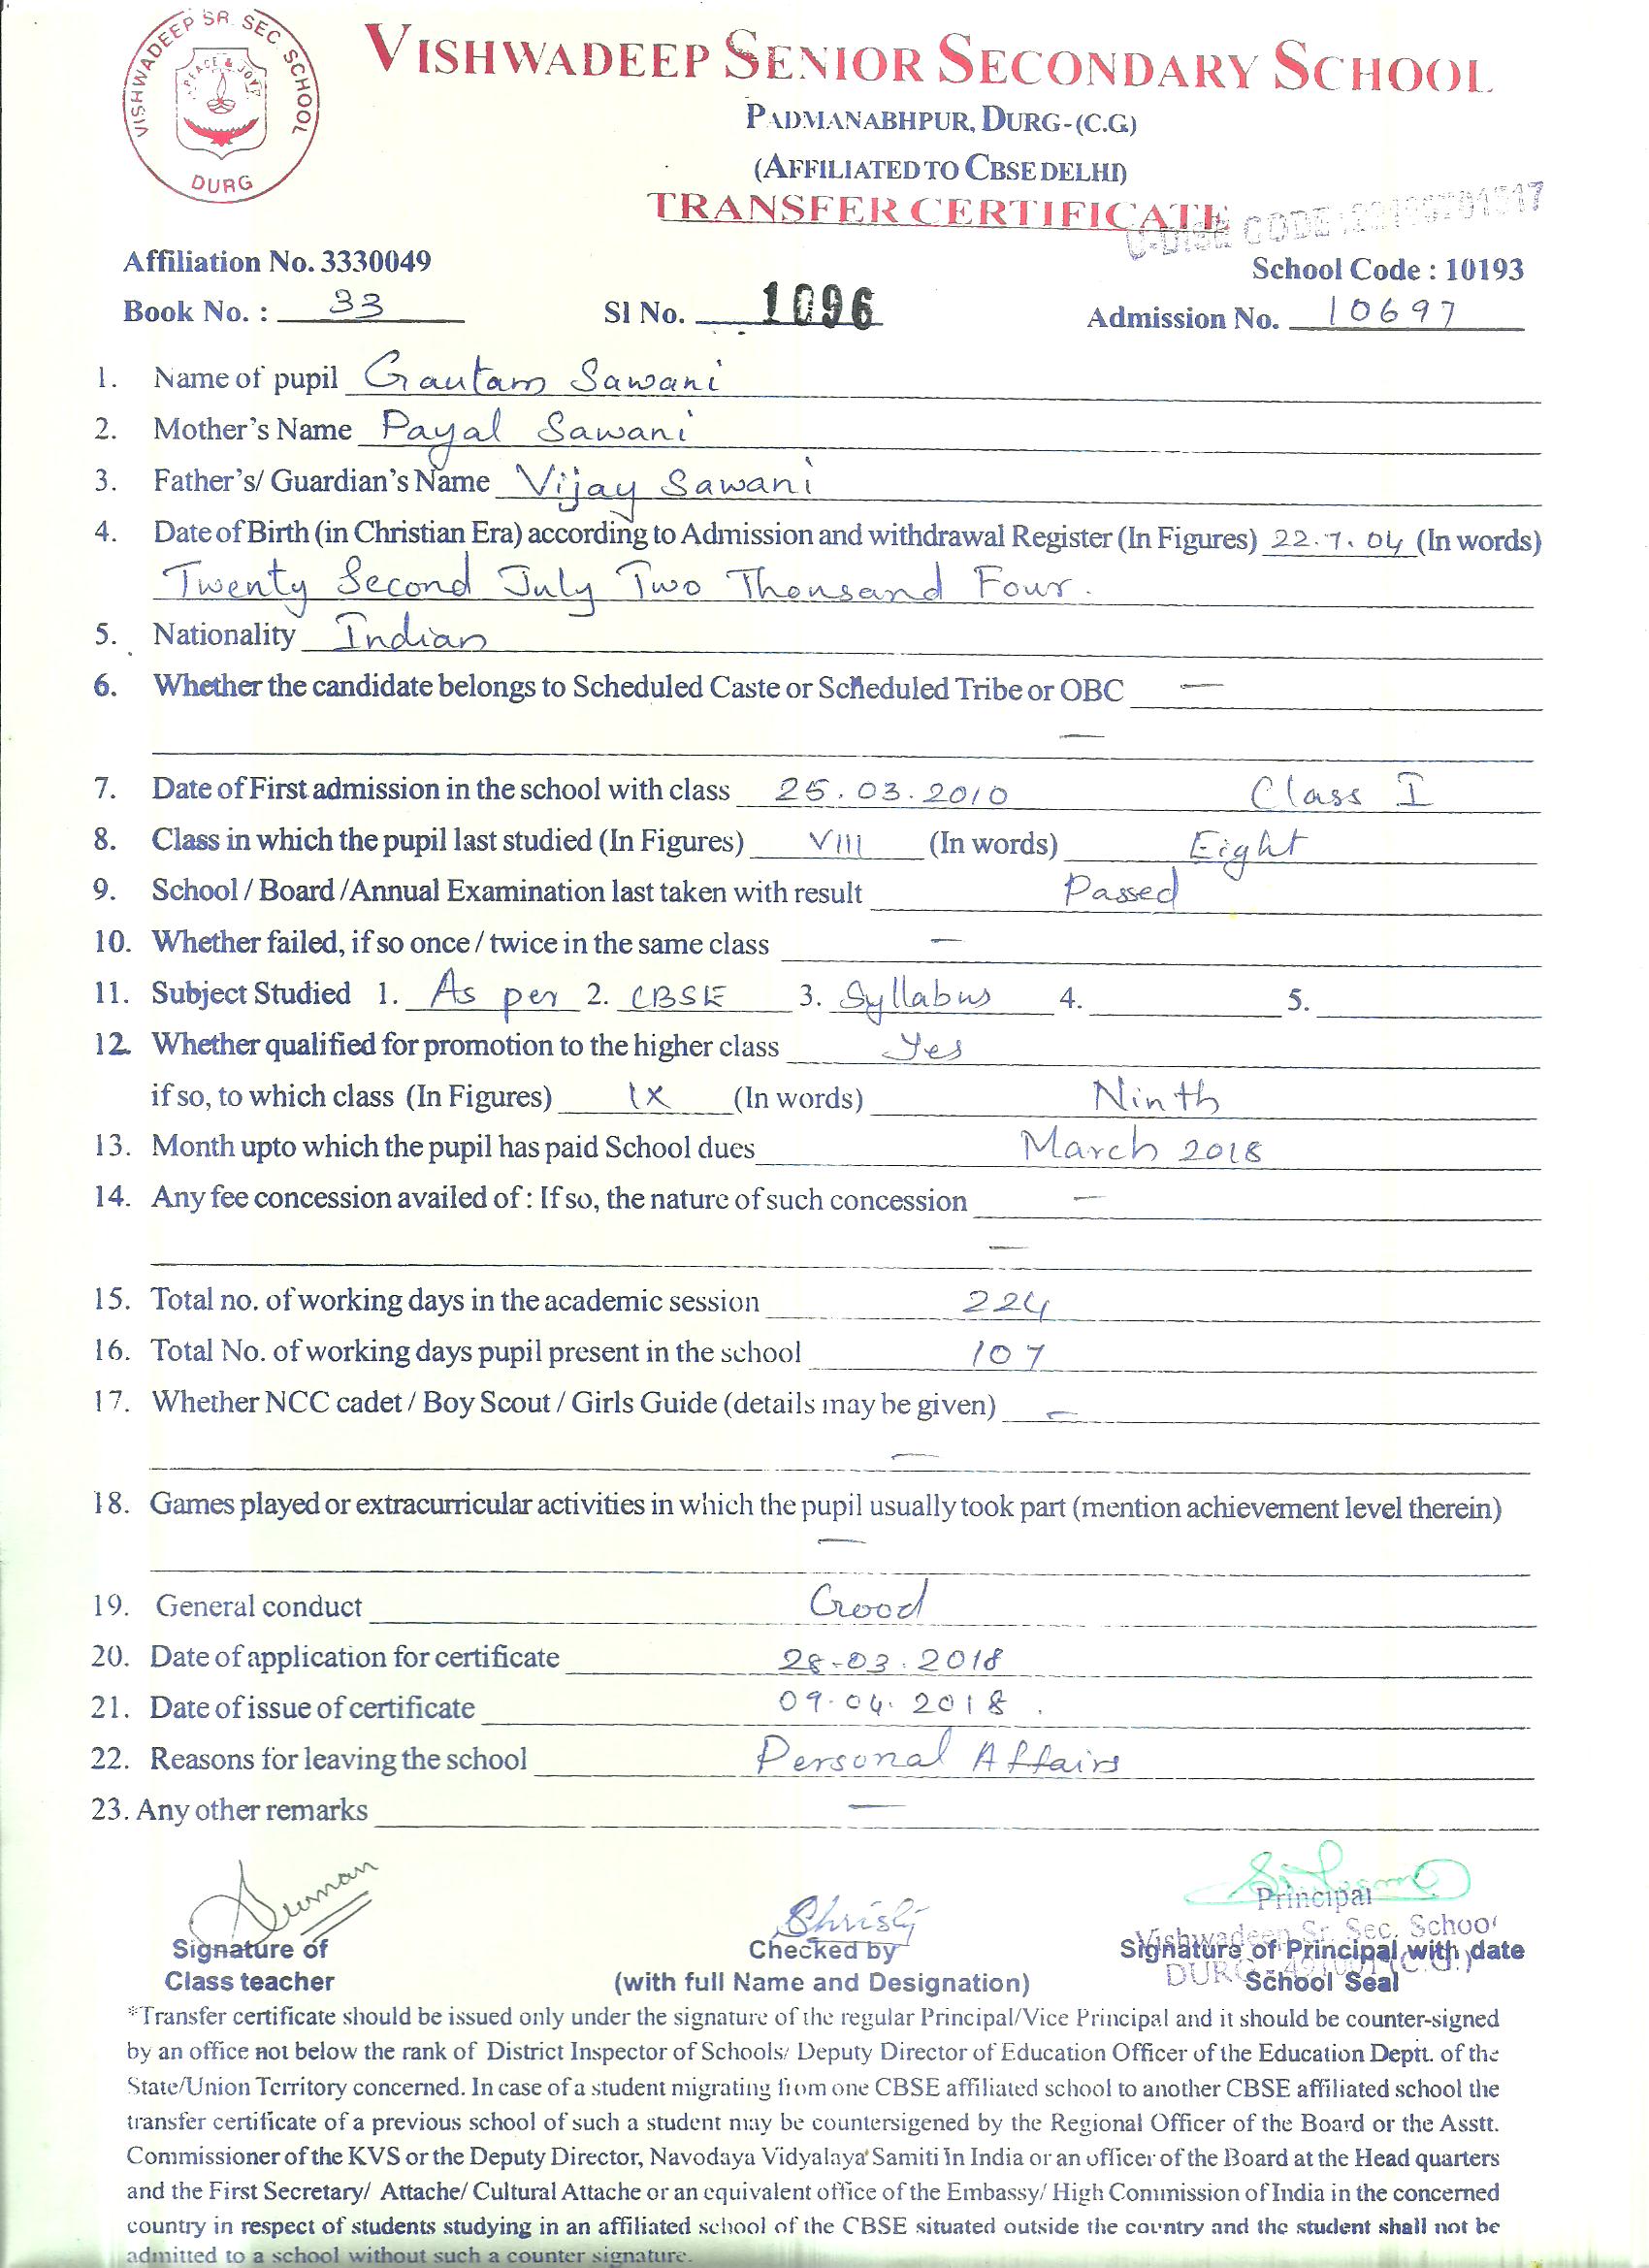 VISHWADEEP SR. SEC. SCHOOL
PEACE & JOY
DURG
VISHWADEEP SENIOR SECONDARY SCHOOL
PADMANABHPUR, DURG-(C.G.)
(AFFILIATED TO CBSE DELHI)
TRANSFER CERTIFICATE
U-DISE CODE
Affiliation No. 3330049
School Code : 10193
Book No. : 33 Sl No. 1096 Admission No. 10697
1. Name of pupil Gautam Sawani
2. Mother's Name Payal Sawani
3. Father's/ Guardian's Name Vijay Sawani
4. Date of Birth (in Christian Era) according to Admission and withdrawal Register (In Figures) 22.7.04 (In words)
Twenty Second July Two Thousand Four.
5. Nationality Indian
6. Whether the candidate belongs to Scheduled Caste or Scheduled Tribe or OBC —
—
7. Date of First admission in the school with class 25.03.2010 Class I
8. Class in which the pupil last studied (In Figures) VIII (In words) Eight
9. School / Board /Annual Examination last taken with result Passed
10. Whether failed, if so once / twice in the same class —
11. Subject Studied 1. As per 2. CBSE 3. Syllabus 4. 5.
12. Whether qualified for promotion to the higher class Yes
if so, to which class (In Figures) IX (In words) Ninth
13. Month upto which the pupil has paid School dues March 2018
14. Any fee concession availed of : If so, the nature of such concession —
—
15. Total no. of working days in the academic session 224
16. Total No. of working days pupil present in the school 107
17. Whether NCC cadet / Boy Scout / Girls Guide (details may be given) —
—
18. Games played or extracurricular activities in which the pupil usually took part (mention achievement level therein)
—
19. General conduct Good
20. Date of application for certificate 28-03.2018
21. Date of issue of certificate 09.04.2018.
22. Reasons for leaving the school Personal Affairs
23. Any other remarks —
Suman
Christy
Principal
Vishwadeep Sr. Sec. School
DURG - 491001 (C.G.)
Signature of Checked by Signature of Principal with date
Class teacher (with full Name and Designation) School Seal
*Transfer certificate should be issued only under the signature of the regular Principal/Vice Principal and it should be counter-signed
by an office not below the rank of District Inspector of Schools/ Deputy Director of Education Officer of the Education Deptt. of the
State/Union Territory concerned. In case of a student migrating from one CBSE affiliated school to another CBSE affiliated school the
transfer certificate of a previous school of such a student may be countersigened by the Regional Officer of the Board or the Asstt.
Commissioner of the KVS or the Deputy Director, Navodaya Vidyalaya Samiti in India or an officer of the Board at the Head quarters
and the First Secretary/ Attache/ Cultural Attache or an equivalent office of the Embassy/ High Commission of India in the concerned
country in respect of students studying in an affiliated school of the CBSE situated outside the country and the student shall not be
admitted to a school without such a counter signature.